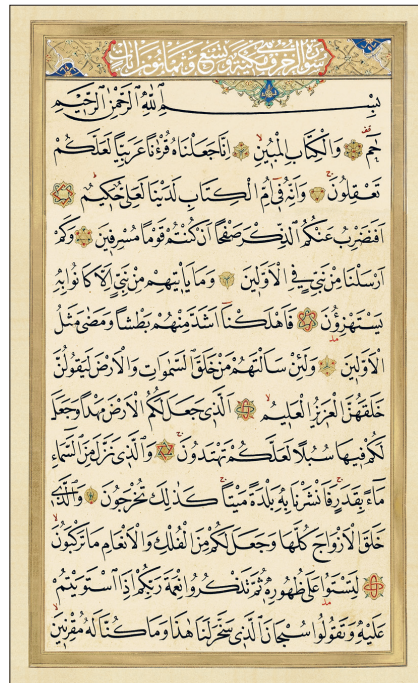 سورة الزخرف مكية وهى تسع وثمانون آيات
بِسْمِ اللهِ الرَّحْمٰنِ الرَّحِيمِ
حٰمٓ وَالْكِتَابِ الْمُبِينِ اِنَّا جَعَلْنَاهُ قُرْءٰنًا عَرَبِيًّا لَعَلَّكُمْ
تَعْقِلُونَ وَاِنَّهُ فِىٓ اُمِّ الْكِتَابِ لَدَيْنَا لَعَلِىٌّ حَكِيمٌ
اَفَنَضْرِبُ عَنْكُمُ الذِّكْرَ صَفْحًا اَنْ كُنْتُمْ قَوْمًا مُسْرِفِينَ وَكَمْ
اَرْسَلْنَا مِنْ نَبِىٍّ فِى الْاَوَّلِينَ وَمَا يَاْتِيهِمْ مِنْ نَبِىٍّ اِلَّا كَانُوا بِهِ
يَسْتَهْزِؤُنَ فَاَهْلَكْنَٓا اَشَدَّ مِنْهُمْ بَطْشًا وَمَضٰى مَثَلُ
الْاَوَّلِينَ وَلَئِنْ سَاَلْتَهُمْ مَنْ خَلَقَ السَّمٰوَاتِ وَالْاَرْضَ لَيَقُولُنَّ
خَلَقَهُنَّ الْعَزِيزُ الْعَلِيمُ اَلَّذِى جَعَلَ لَكُمُ الْاَرْضَ مَهْدًا وَجَعَلَ
لَكُمْ فِيهَا سُبُلًا لَعَلَّكُمْ تَهْتَدُونَ وَالَّذِى نَزَّلَ مِنَ السَّمَٓاءِ
مَٓاءً بِقَدَرٍ فَاَنْشَرْنَا بِهِ بَلْدَةً مَيْتًا كَذٰلِكَ تُخْرَجُونَ وَالَّذِى
خَلَقَ الْاَزْوَاجَ كُلَّهَا وَجَعَلَ لَكُمْ مِنَ الْفُلْكِ وَالْاَنْعَامِ مَا تَرْكَبُونَ
لِتَسْتَوُا عَلٰى ظُهُورِهِ ثُمَّ تَذْكُرُوا نِعْمَةَ رَبِّكُمْ اِذَا اسْتَوَيْتُمْ
عَلَيْهِ وَتَقُولُوا سُبْحَانَ الَّذِى سَخَّرَ لَنَا هٰذَا وَمَا كُنَّا لَهُ مُقْرِنِينَ